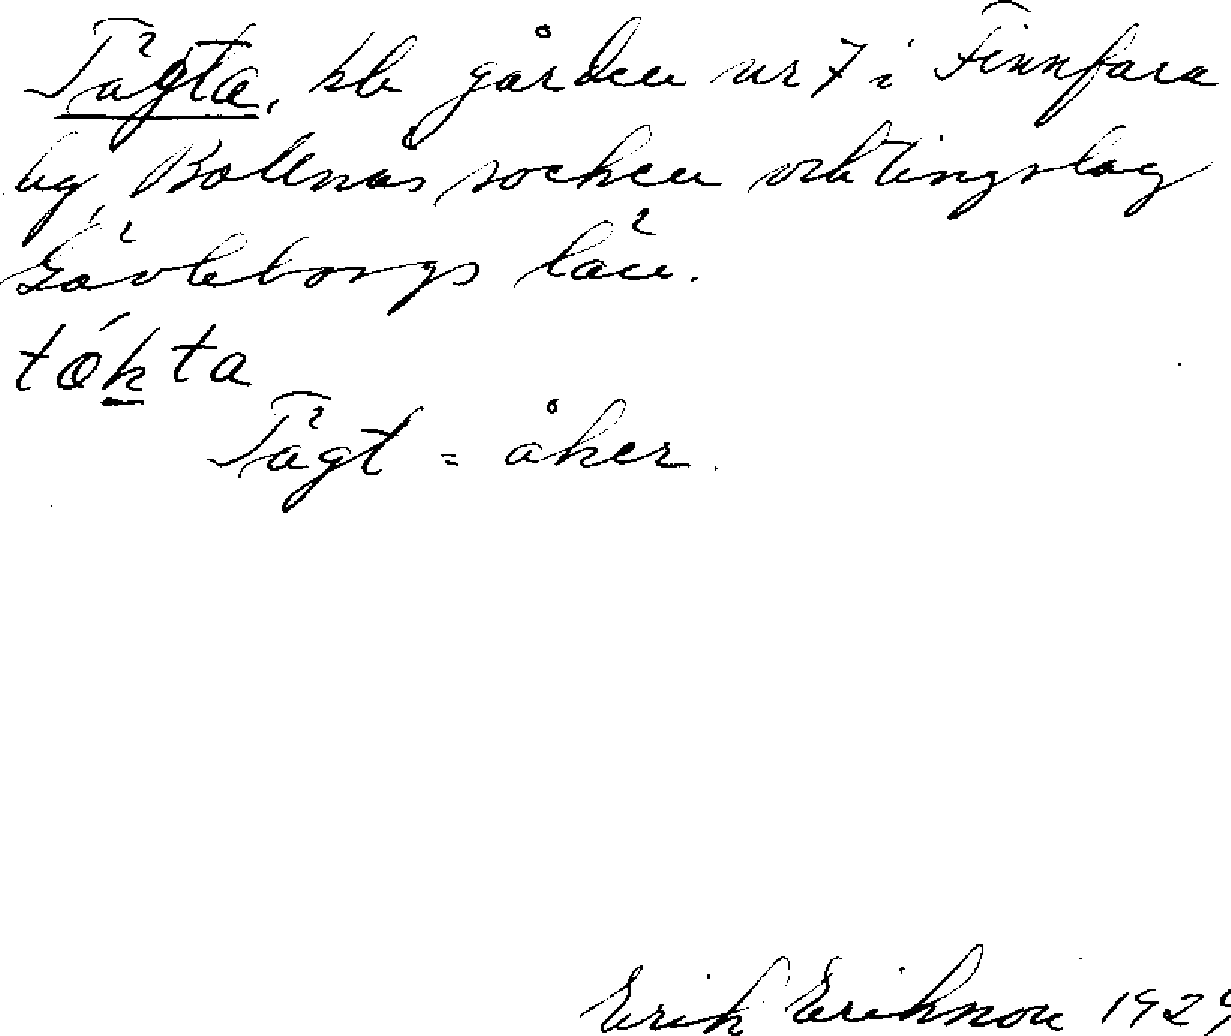 Tägta, kb gården nr 7 i Finnfara
by, Bollnäs socken och tingslag
Gävleborgs län.
tókta
Tägt = åker.
Erik Eriksson 1929